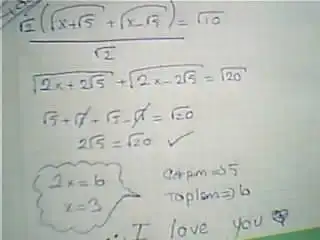 √2 (√x+√5 + √x-√5) = √10
√2
√2x+2√5 + √2x-2√5 = √20
√5+√1+√5-√1=√20
2√5=√20 ✓
2x=6
x=3
Çarpım=>5
Toplam=>6
I love you